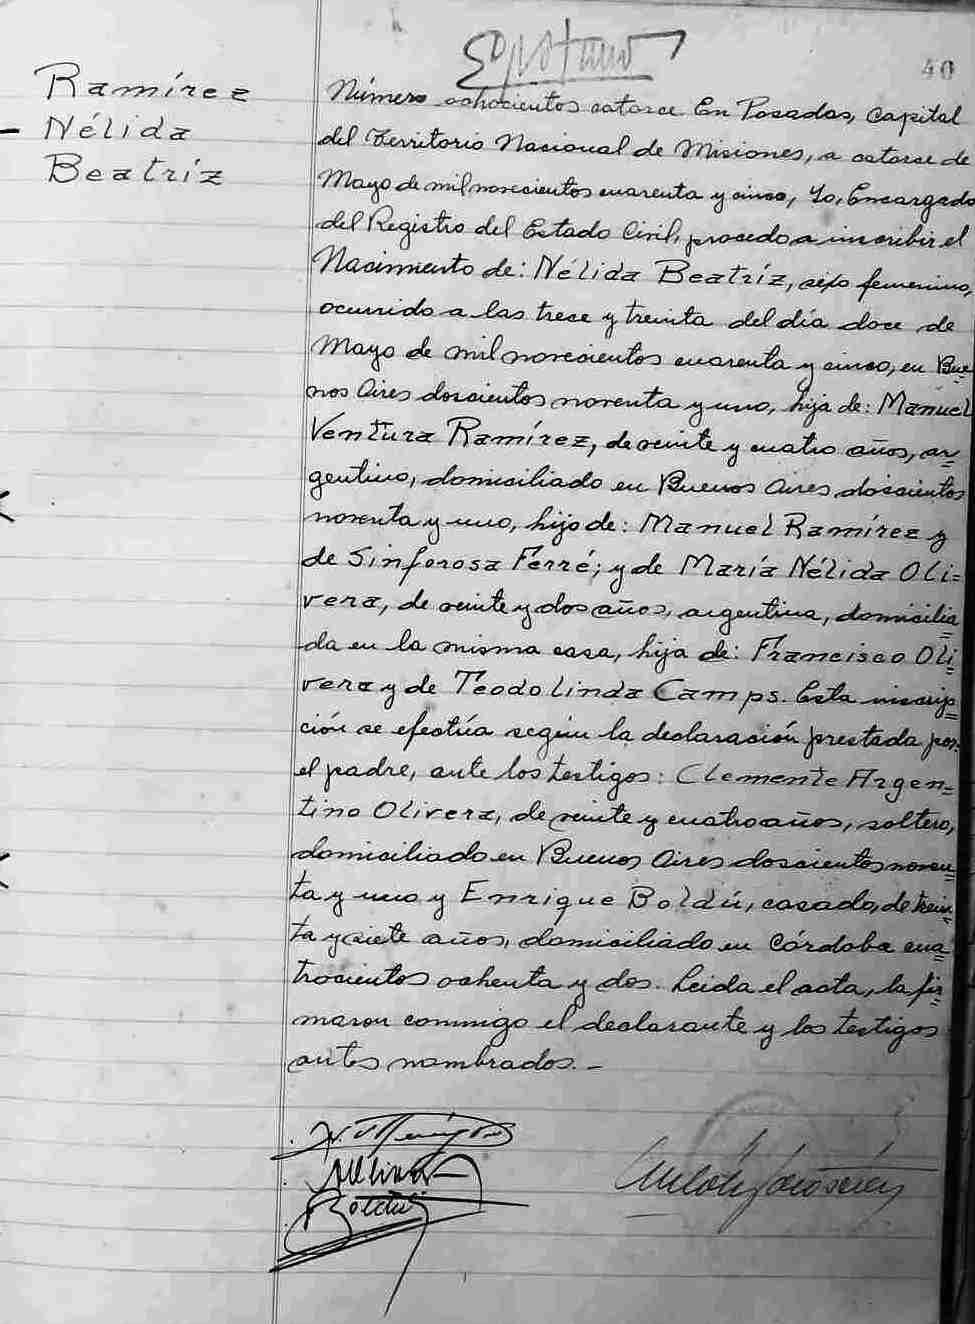 40
Ramírez
Nélida
Beatríz
Número ochocientos catorce. En Posadas, Capital
del Territorio Nacional de Misiones, a catorce de
Mayo de mil novecientos cuarenta y cinco, Yo, Encargado
del Registro del Estado Civil, procedo a inscribir el
Nacimiento de: Nélida Beatríz, sexo femenino,
ocurrido a las trece y treinta del día doce de
Mayo de mil novecientos cuarenta y cinco, en Bue=
nos Aires doscientos noventa y uno, hija de: Manuel
Ventura Ramírez, de veinte y cuatro años, ar=
gentino, domiciliado en Buenos Aires doscientos
noventa y uno, hijo de: Manuel Ramírez y
de Sinforosa Ferré; y de María Nélida Oli=
vera, de veinte y dos años, argentina, domicilia=
da en la misma casa, hija de: Francisco Oli=
vera y de Teodolinda Camps. Esta inscrip=
ción se efectúa según la declaración prestada por
el padre, ante los testigos: Clemente Argen=
tino Olivera, de veinte y cuatro años, soltero,
domiciliado en Buenos Aires doscientos noven=
ta y uno y Enrique Boldú, casado, de trein=
ta y siete años, domiciliado en Córdoba cua=
trocientos ochenta y dos. Leida el acta, la fir=
maron conmigo el declarante y los testigos
antes nombrados.—
Boldú